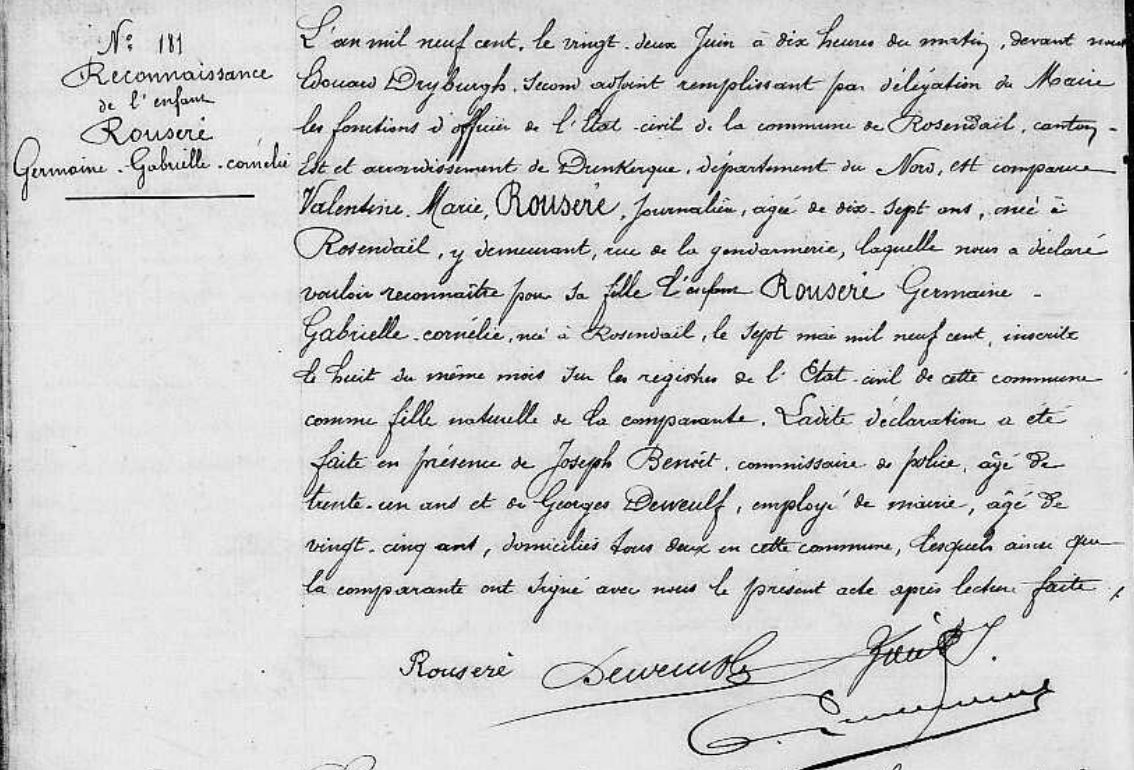 N° 181
Reconnaissance
de l'enfant
Rouseré
Germaine - Gabrielle - cornélie
L'an mil neuf cent, le vingt-deux Juin à dix heures du matin, devant nous
Edouard Dryburgh, second adjoint remplissant par délégation du Maire
les fonctions d'officier de l'Etat-civil de la commune de Rosendaël, canton -
Est et arrondissement de Dunkerque, département du Nord, est comparue
Valentine Marie, Rouseré, journalière, agée de dix-sept ans, née à
Rosendaël, y demeurant, rue de la gendarmerie, laquelle nous a déclaré
vouloir reconnaître pour sa fille l'enfant Rouseré Germaine -
Gabrielle - cornélie, née à Rosendaël, le sept mai mil neuf cent, inscrite
le huit du même mois sur les registres de l'Etat-civil de cette commune
comme fille naturelle de la comparante. Ladite déclaration a été
faite en présence de Joseph Benoit, commissaire de police, âgé de
trente-un ans et de Georges Deweulf, employé de mairie, âgé de
vingt-cinq ans, domiciliés tous deux en cette commune, lesquels ainsi que
la comparante ont signé avec nous le présent acte après lecture faite
Rouseré Deweulf